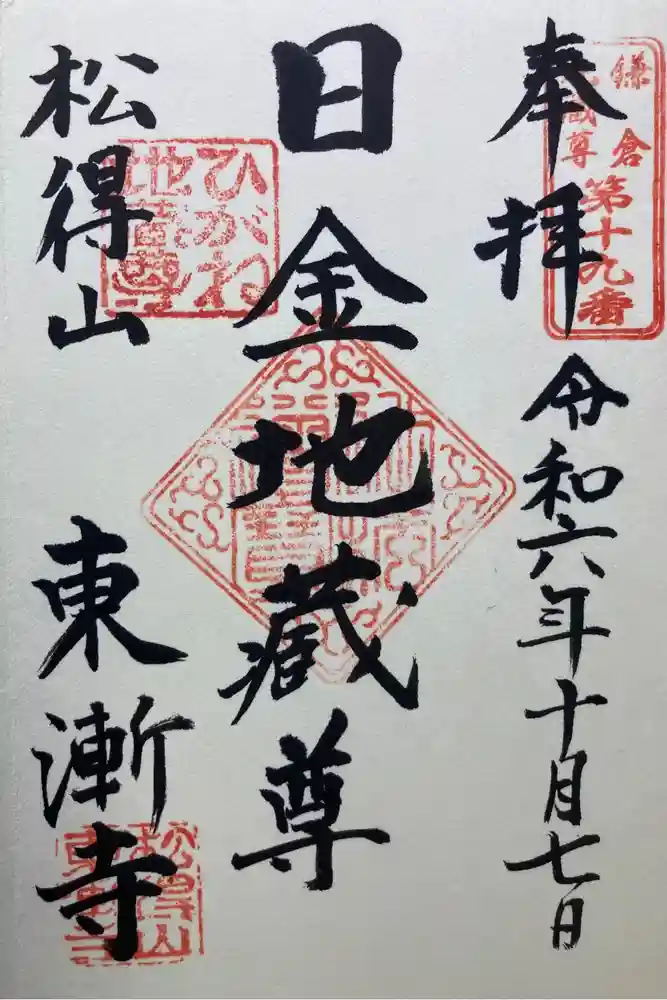 奉拝
令和六年十月七日
鎌倉
蔵尊
第十九番
日金地蔵尊
ひがね
地蔵尊
松得山
東漸寺
松得山